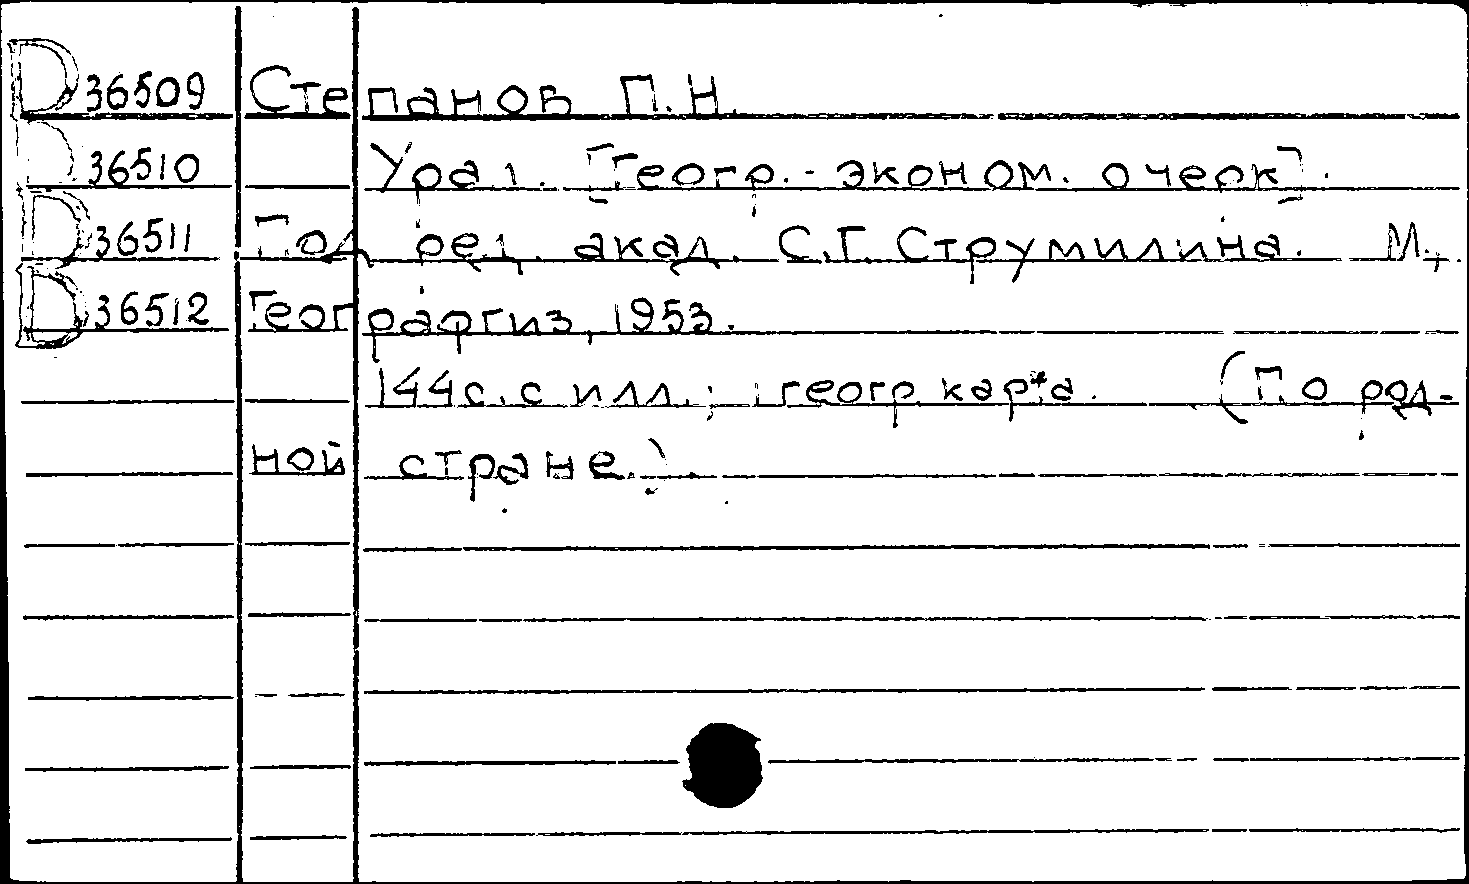 В 36509 Степанов П.Н.
В 36510 Урал. [Геогр.- эконом. очерк].
В 36511 Под ред. акад. С.Г. Струмилина. М.,
В 36512 Географгиз, 1953.
144с. с илл.; 1 геогр. карта. (П. о род-
ной стране.).